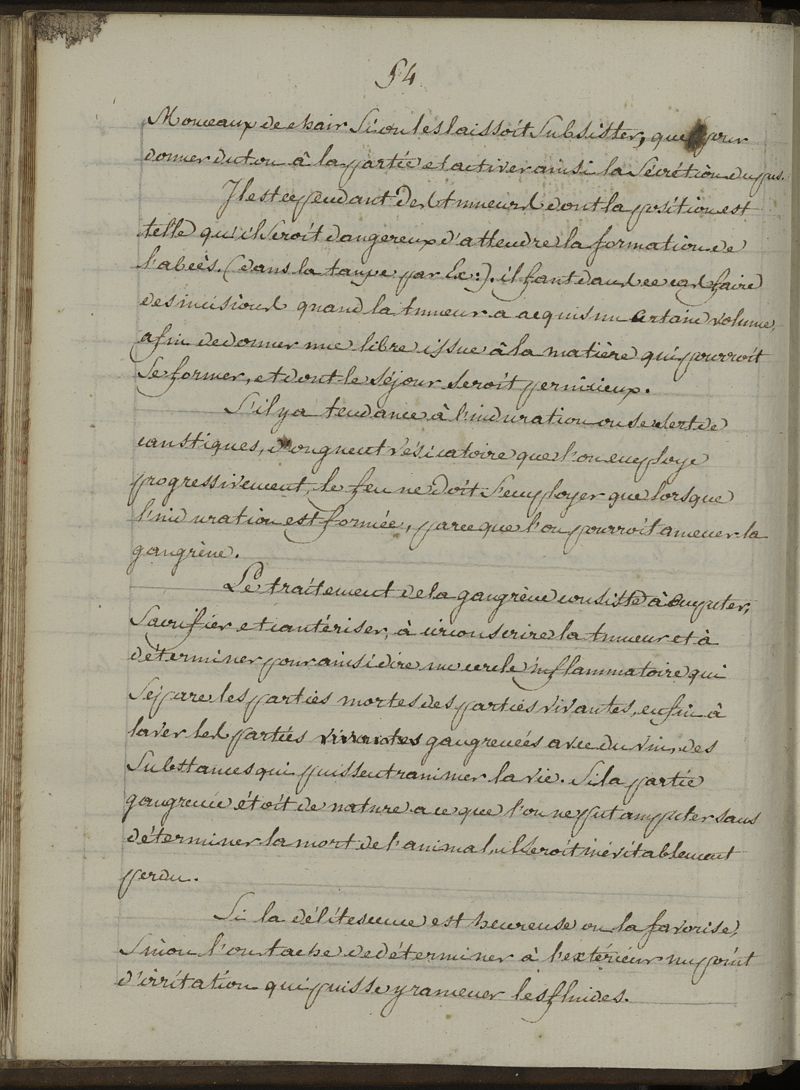 54
Morceaux de chair Si on les laissoit Subsister, que pour
donner du ton à la partie et activer ainsi la Sécrétion du pus.
Il est cependant des tumeurs dont la position est
telle qu'il Seroit dangereux d'attendre la formation de
l'abcès. (dans la taupe par Ex:). il faut dans ce cas faire
des incisions quand la tumeur a acquis un certain volume,
afin de donner une libre issue à la matière qui pourroit
Se former, et dont le Séjour Seroit pernicieux.
S'il y a tendance à l'induration on se sert de
caustiques, d'onguent vésicatoire que l'on employe
progressivement, le feu ne doit S'employer que lorsque
l'induration est formée, parce que l'on pourroit amener la
gangrène.
Le traitement de la gangrène consiste à amputer,
Sacrifier et cautériser, à circonscrire la tumeur et à
déterminer pour ainsi dire un cercle inflammatoire qui
Sépare les parties mortes des parties vivantes, enfin à
laver les parties vivantes gangrenées avec du vin, des
Substances qui puissent ranimer la vie. Si la partie
gangrenée étoit de nature a ce que l'on ne put amputer sans
déterminer la mort de l'animal, il Seroit inévitablement
perdu.
Si la délitescence est heureuse on la favorise,
Sinon l'on tache de déterminer à l'extérieur un point
d'irritation qui puisse y ramener les fluides.